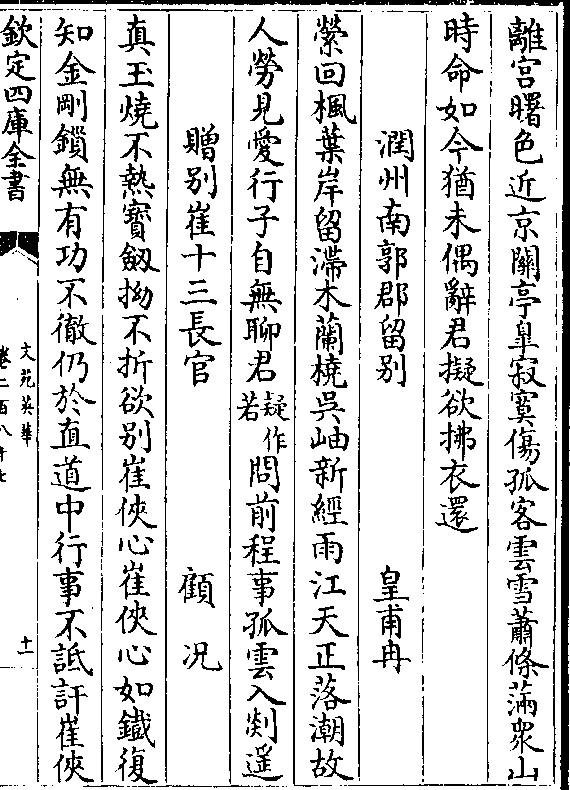 離宮曙色近京關亭臯寂寞傷孤客雲雪蕭條滿衆山
時命如今猶未偶辭君擬欲拂衣還
潤州南郭郡留别　皇甫冉
縈回楓葉岸留滯木蘭橈吳岫新經雨江天正落潮故
人勞見愛行子自無聊君疑作若問前程事孤雲入剡遥
贈别崔十三長官　顧况
真玉燒不熱寶劔拗不折欲别崔俠心崔俠心如鐵復
知金剛鎖無有功不徹仍於直道中行事不詆訐崔俠
欽定四庫全書
文苑英華
卷二百八十七
十一